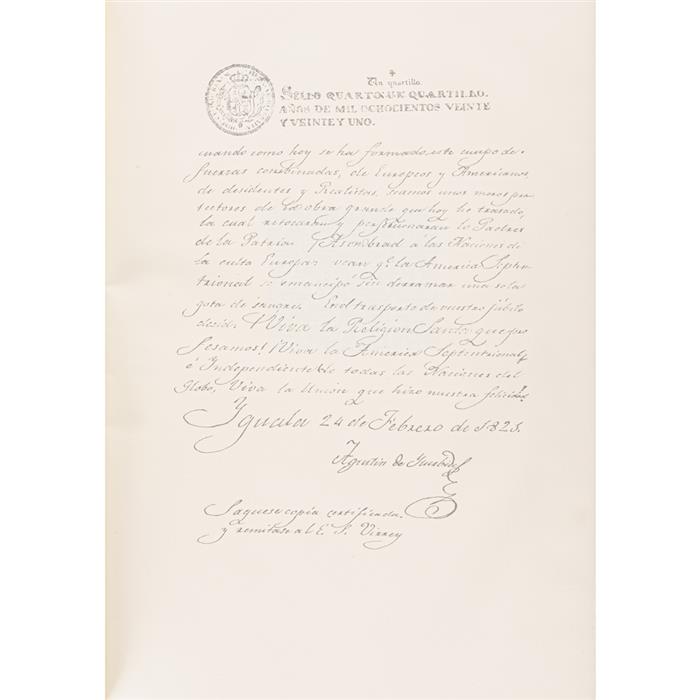 Un quartillo.
SELLO QUARTO UN QUARTILLO.
AÑOS DE MIL OCHOCIENTOS VEINTE
Y VEINTE Y UNO.
cuando como hoy se ha formado este cuerpo de
fuerzas combinadas, de Europeos y Americanos,
de desidentes y Realistas, seamos unos meros pro-
tectores de la obra grande que hoy he trasado,
la cual retocarán y perfeccionarán los Padres
de la Patria. Asombrad á las Naciones de
la culta Europa: vean qe. la America Septen
trional se emancipó sin derramar una sola
gota de sangre. En el trasporte de vuestro júbilo
decid: ¡Viva la Religion Santa que pro
fesamos! ¡Viva la America Septentrional,
é Independiente de todas las Naciones del
Globo, Viva la Union que hizo nuestra felicidad!
Yguala 24 de Febrero de 1821.
Agustin de Iturbide
Saquese copia certificada
y remitase al E. S. Virrey